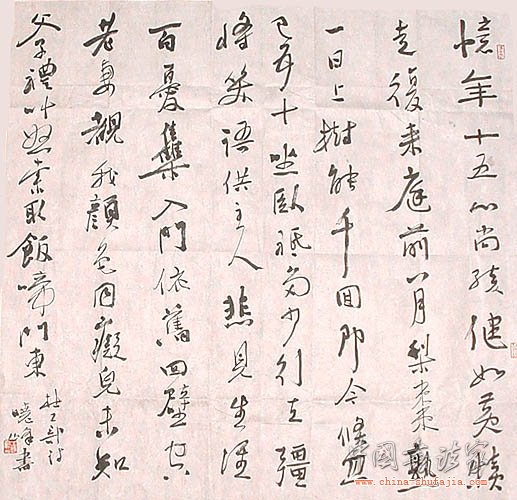 憶年十五心尚孩健如黃犢
走復來庭前八月梨棗熟
一日上樹能千回即今倏忽
已五十坐臥祗多少行立彊
將笑語供主人悲見生涯
百憂集入門依舊四壁空
老妻覩我顏色同癡兒未知
父子禮叫怒索取飯啼門東
杜工部詩
書
中國書法家
www.china-shufajia.com